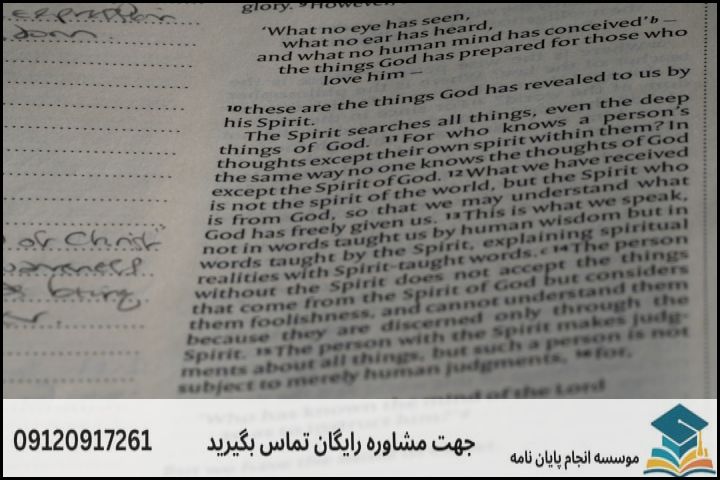 expression
glory. 9 However,
'What no eye has seen,
what no ear has heard,
and what no human mind has conceived' b —
the things God has prepared for those who
love him —
10 these are the things God has revealed to us by
his Spirit.
The Spirit searches all things, even the deep
things of God. 11 For who knows a person's
thoughts except their own spirit within them? In
the same way no one knows the thoughts of God
except the Spirit of God. 12 What we have received
is not the spirit of the world, but the Spirit who
is from God, so that we may understand what
God has freely given us. 13 This is what we speak,
not in words taught us by human wisdom but in
words taught by the Spirit, explaining spiritual
realities with Spirit-taught words. c 14 The person
without the Spirit does not accept the things
that come from the Spirit of God but considers
them foolishness, and cannot understand them
because they are discerned only through the
Spirit. 15 The person with the Spirit makes judg-
ments about all things, but such a person is not
subject to merely human judgments, 16 for,
'Who has known the mind of the Lord
of Christ
being
جهت مشاوره رایگان تماس بگیرید
09120917261
موسسه انجام پایان نامه